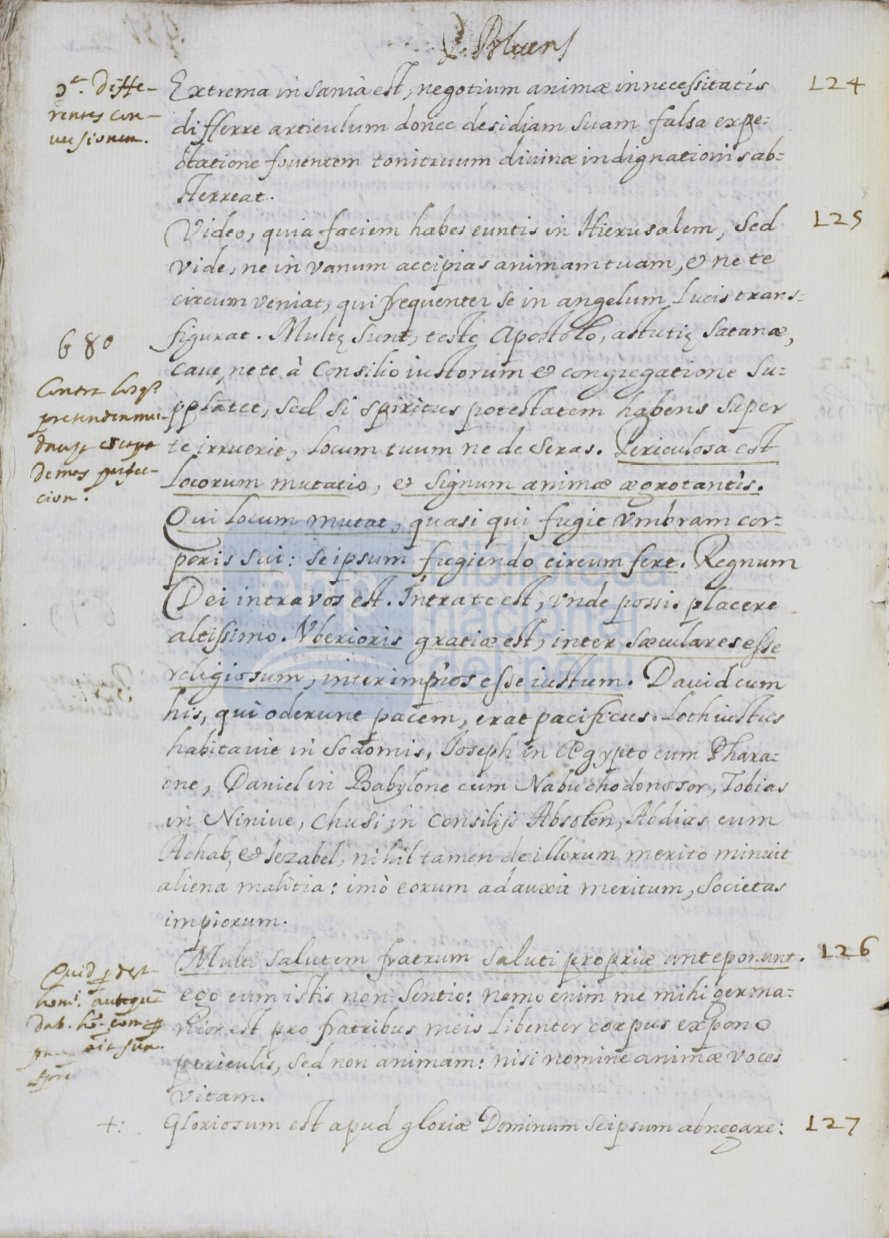 P. Blæsens
Extrema insania est, negotium animæ in necessitatis 124
differre articulum donec desidiam suam falsa expe-
ctatione foventem tonitruum divinæ indignationis ab-
sterreat.
Video, quia faciem habes euntis in Hierusalem, sed 125
vide, ne in vanum accipias animam tuam, & ne te
circumveniat, qui frequenter se in angelum Lucis trans-
figurat. Multę sunt, teste Apostolo, astutię Satanæ,
Caue, ne te à Consilio iustorum & congregatione su-
pplātet, sed si spiritus potestatem habens super
te irruerit, locum tuum ne deseras. Periculosa est
Locorum mutatio, et signum animæ ægrotantis.
Qui locum mutat, quasi qui fugit vmbram cor-
poris sui: seipsum fugiendo circumfert. Regnum
Dei intra vos est. Intrate est, vnde possis placere
altissimo. Vberioris gratiæ est, inter sæculares esse
religiosum, inter impios esse iustum. Dauid cum
his, qui oderunt pacem, erat pacificus. Loth iustus
habitauit in Sodomis, Joseph in Ægypto cum Phara-
one, Daniel in Babylone cum Nabuchodonosor, Tobias
in Niniue, Chusi in Consilijs Absolon, Abdias cum
Achab, & Iezabel, nihil tamen de illorum merito minuit
aliena malitia: imò eorum adauxit meritum, Societas
impiorum.
Multi salutem fratrum saluti propriæ anteponunt. 126
ego cum istis non sentio: nemo enim me mihi germa-
nior est pro fratribus meis libenter corpus expono
periculis, sed non animam: nisi nomine animæ voces
vitam.
+: Gloriosum est apud gloriæ Dominum seipsum abnegare: 127
differentes con-
uersionem.
680
Contra los q̃
pretenden mu-
darse
de mas perfec-
cion.
Quid
biblioteca
nacional
del perú